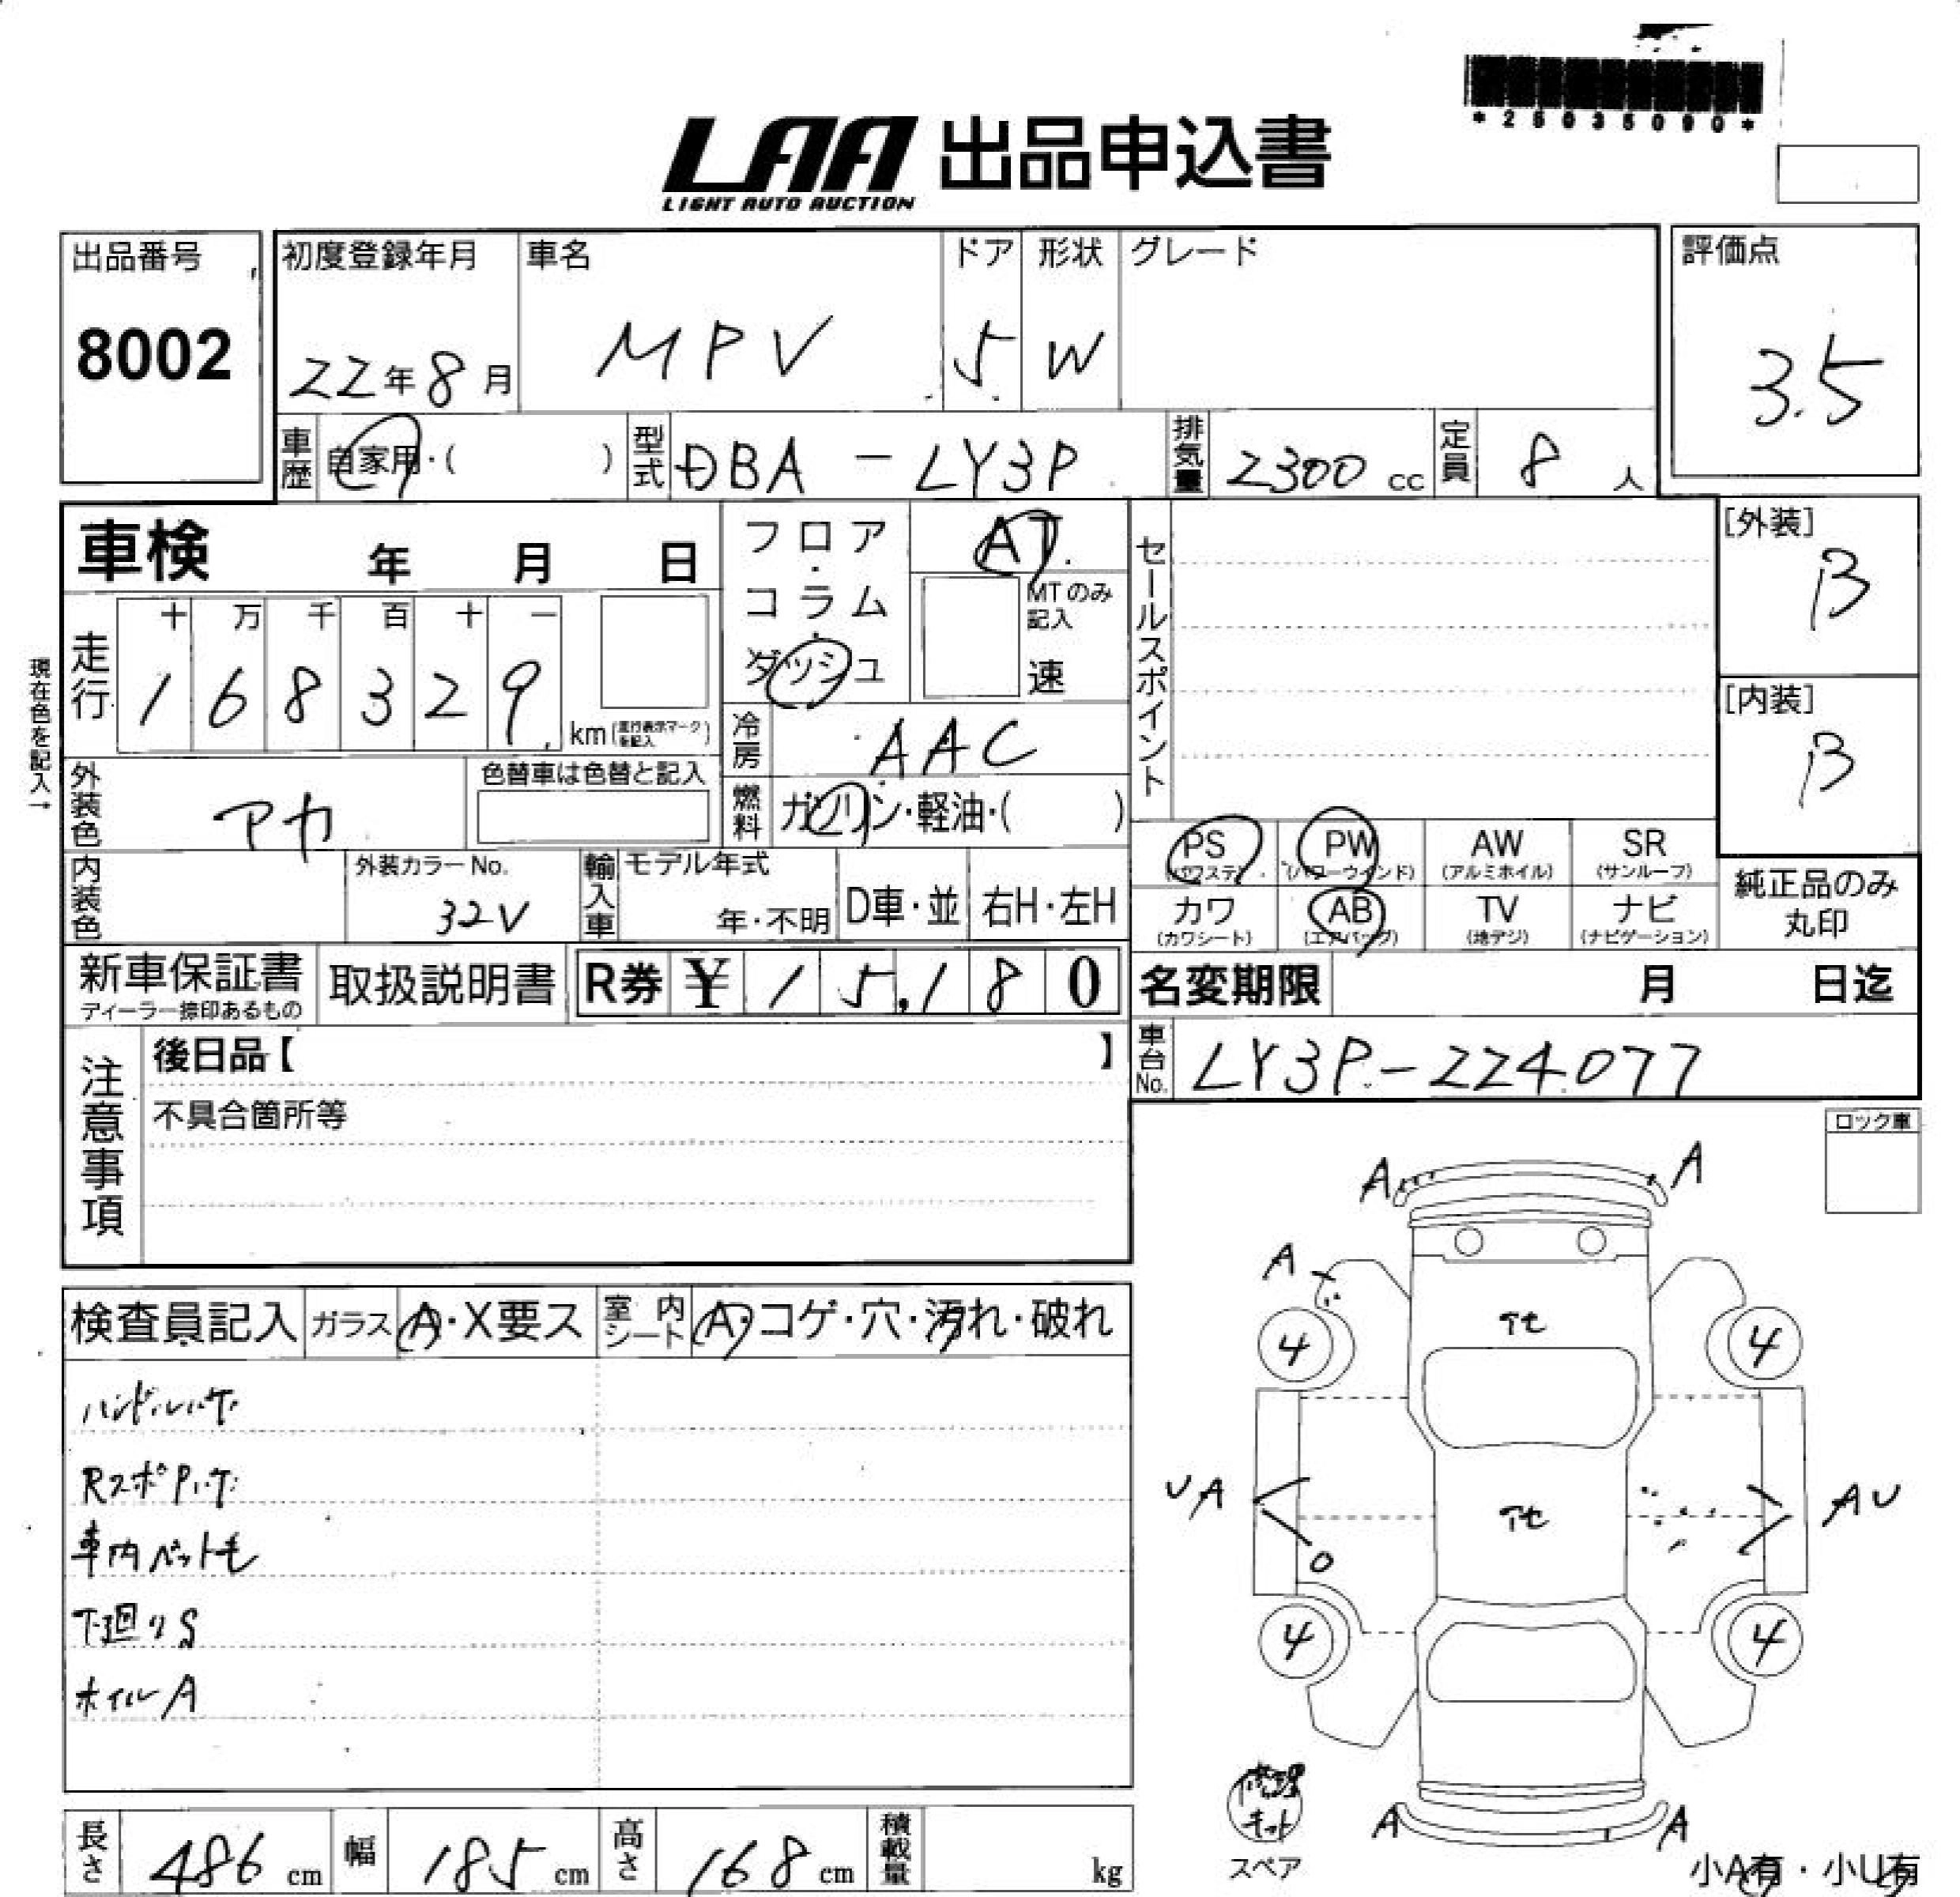 *26035090*
LAA 出品申込書
LIGHT AUTO AUCTION
出品番号
8002
初度登録年月
22年8月
車名
MPV
ドア
5
形状
W
グレード
評価点
3.5
車歴
自家用・( )
型式
DBA-LY3P
排気量
2300 cc
定員
8 人
車検 年 月 日
フロア・コラム・ダッシュ
AT
MTのみ記入
速
セールスポイント
[外装]
B
[内装]
B
現在色を記入→
走行
十 万 千 百 十 一
1 6 8 3 2 9
km(走行表示マークを記入)
冷房
AAC
燃料
ガソリン・軽油・( )
外装色
アカ
色替車は色替と記入
内装色
外装カラーNo.
32V
輸入車
モデル年式
年・不明
D車・並
右H・左H
PS
(パワステ)
PW
(パワーウインド)
AW
(アルミホイル)
SR
(サンルーフ)
カワ
(カワシート)
AB
(エアバッグ)
TV
(地デジ)
ナビ
(ナビゲーション)
純正品のみ
丸印
新車保証書
ディーラー捺印あるもの
取扱説明書
R券 ¥ 15,180
名変期限 月 日迄
車台No.
LY3P-224077
注意事項
後日品【 】
不具合箇所等
ロック車
検査員記入
ガラス
A・X要ス
室内シート
A・コゲ・穴・汚れ・破れ
ハンドルハゲ
RスポPハゲ
車内ペット毛
下廻りS
ホイルA
A A
A
4 4
UA AU
4 4
A A
修理キット
スペア
小A有・小U有
長さ
486 cm
幅
185 cm
高さ
168 cm
積載量
kg